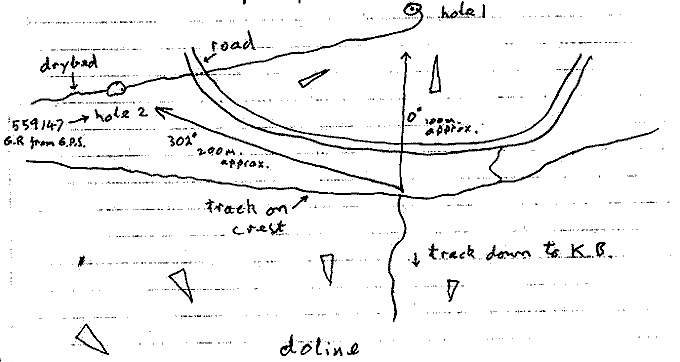 hole 1
road
drybed
0° 100m.
approx.
559147 → hole 2
G.R from G.P.S.
302°
200m.
approx.
track on
crest
↓ track down to K.B.
doline